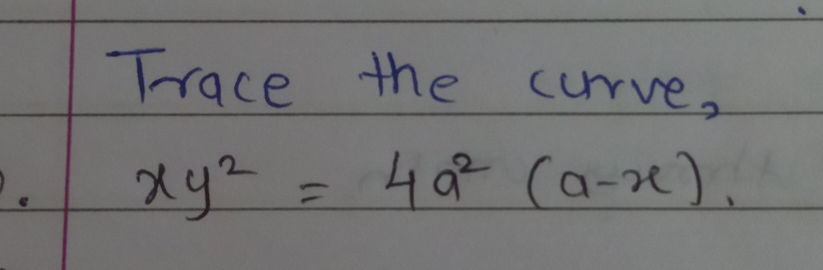 Trace the curve,
. xy² = 4a² (a-x).